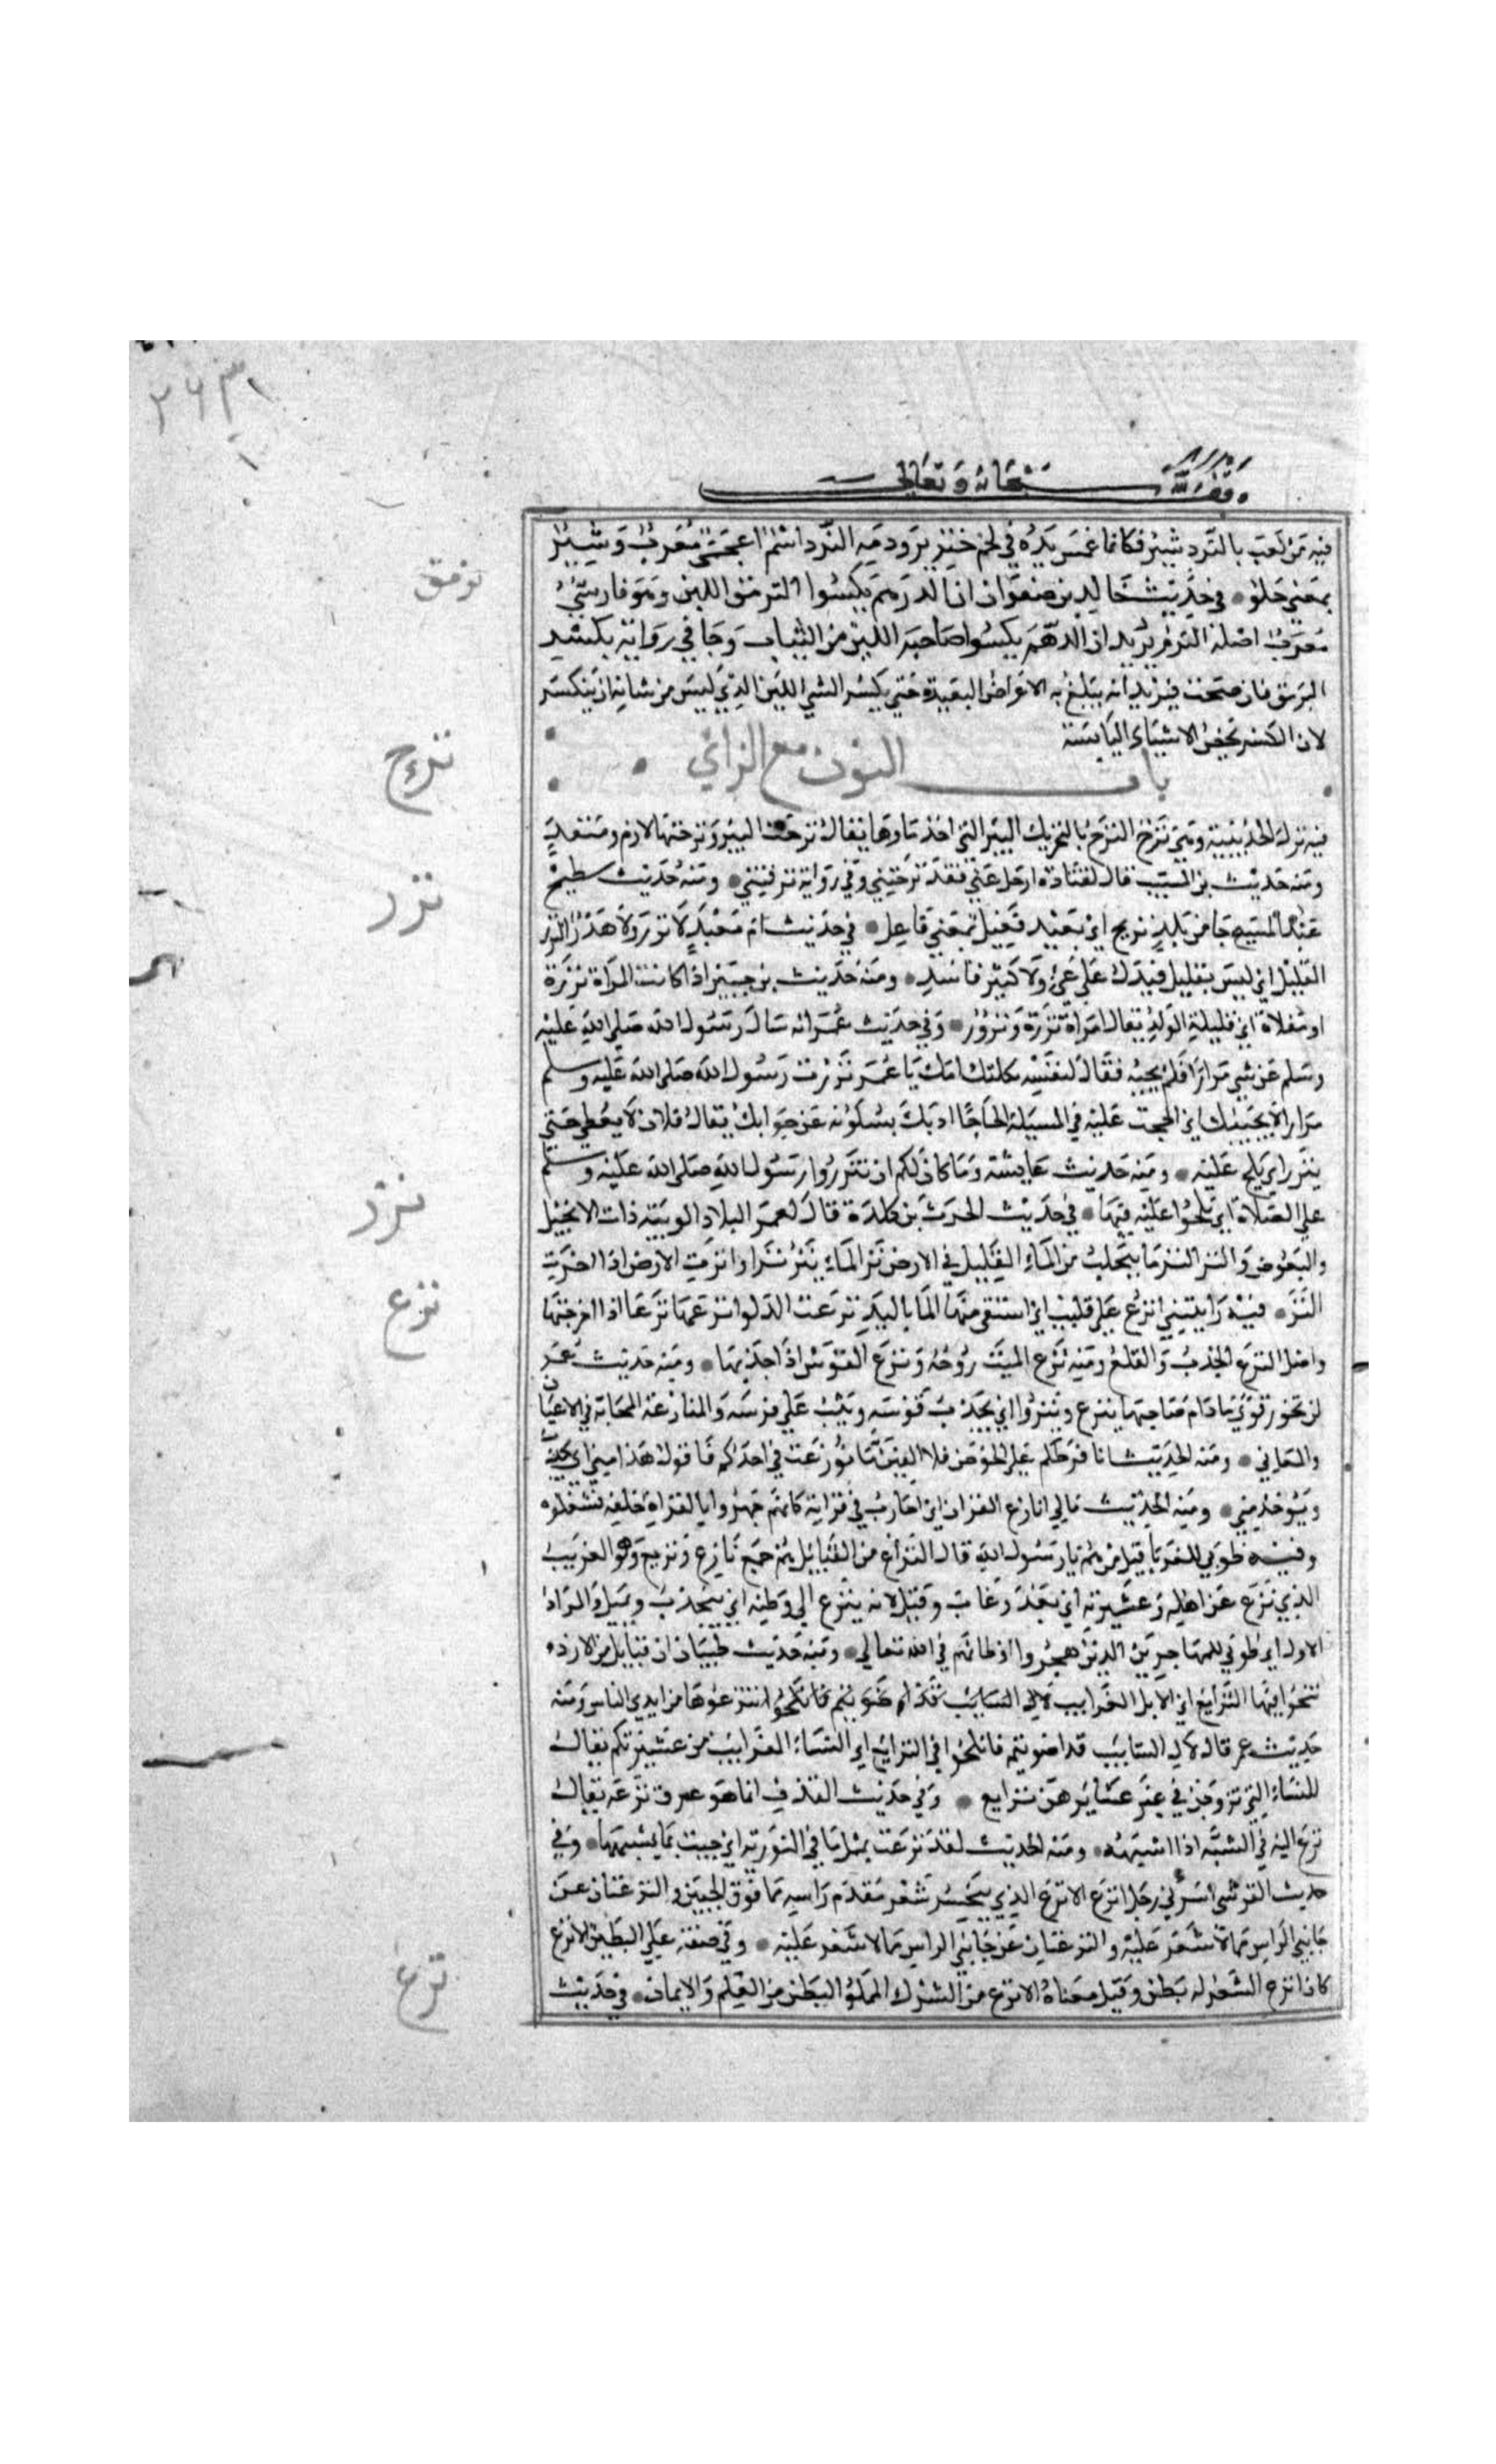 وقف لله سبحانه وتعالى
فيه من لعب بالنرد شير فكانما غمس يده في لحم خنزير ودمه النرد اسم اعجمي معرب وشير
بمعني حلو في حديث خالد بن صفوان ان الدرهم يكسوا النرمق اللين وهو فارسي
معرب اصله النرم يريد ان الدرهم يكسوا صاحبه اللين من الثياب وجا في رواية يكسر
النرمق فان صحت فيريد انه يبلغ به الاغراض البعيدة حتي يكسر الشي اللين الذي ليس من شانه ان ينكسر
لان الكسر تخص الاشياء اليابسة
نرمق
باب النون مع الزاي
نزح
فيه نزل الحديبية وهي نزح النزح بالتحريك البير التي اخذ ماوها يقال نزحت البير ونزحتها لازم ومتعد
ومنه حديث بن المسيب قال لقتادة ارحل عني فقد نزحتني وفي رواية نزفتني ومنه حديث سطيح
نزر
عبد المسيح جا من بلد نزيح اي بعيد فعيل بمعني فاعل في حديث ام معبد لا نزر ولا هذر النزر
القليل اي ليس بقليل فيدل علي عي ولا كثير فاسد ومنه حديث بن جبير اذا كانت المراة نزرة
او مقلاة اي قليلة الولد يقال امراة نزرة ونزور وفي حديث عمر انه سال رسول الله صلي الله عليه
وسلم عن شي مرارا فلم يجبه فقال لنفسه ثكلتك امك يا عمر نزرت رسول الله صلي الله عليه وسلم
مرارا لا يجيبك اي الححت عليه في المسيلة الحاحا ادبك بسكوته عن جوابك يقال فلان لا يعطي حتي
ينزر اي يلح عليه ومنه حديث عايشة وما كان لكم ان تنزروا رسول الله صلي الله عليه وسلم
نزز
علي الصلاة اي تلحوا عليه فيها في حديث الحرث بن كلدة قال لعمر البلاد الوبيئة ذات الانجال
والبعوض والنز النز ما يتحلب من الماء القليل في الارض نز الماء ينز نزا وانزت الارض اذا اخرجت
نزع
النز فيه رايتني انزع علي قليب اي استقي منها الما باليد نزعت الدلو انزعها نزعا اذا اخرجتها
واصل النزع الجذب والقلع ومنه نزع الميت روحه ونزع القوس اذا جذبها ومنه حديث عمر
لن تخور قوي ما دام صاحبها ينزع وينزوا اي يجذب قوسه ويثب علي فرسه والمنازعة المجاذبة في الاعيان
والمعاني ومنه الحديث انا فرطكم علي الحوض فلا الفين ما نوزعت في احدكم فاقول هذا مني اي يجذب
ويوخذ مني ومنه الحديث مالي انازع القران اي اجاذب في قرايته كانهم جهروا بالقراة خلفه فشغلوه
وفيه طوبي للغربا قيل من هم يا رسول الله قال النزاع من القبايل هم جمع نازع ونزيع وهو الغريب
الذي نزع عن اهله وعشيرته اي بعد وغاب وقيل لانه ينزع الي وطنه اي ينجذب ويميل والمراد
الاول اي طوبي للمهاجرين الذين هجروا اوطانهم في الله تعالي ومنه حديث ظبيان ان قبايل من الازد
نتجوا فيها النزايع اي الابل الغرايب ومنه
حديث عمر قال لال السايب قد اضويتم فانكحوا في النزايع اي النساء الغرايب من عشيرتكم يقال
للنساء التي تزوجن في غير عشايرهن نزايع وفي حديث القذف انما هو عرق نزعه يقال
نزع اليه في الشبه اذا اشبهه ومنه الحديث لقد نزعت بمثل ما في التورية اي جيت بما يشبهها وفي
حديث القرشي اسرني رجل انزع الانزع الذي ينحسر شعر مقدم راسه مما فوق الجبين والنزعتان عن
جانبي الراس مما لا شعر عليه والنزعتان عن جانبي الراس مما لا شعر عليه وفي صفة علي البطين الانزع
نزغ
كان انزع الشعر له بطن وقيل معناه الانزع من الشرك المملو البطن من العلم والايمان في حديث